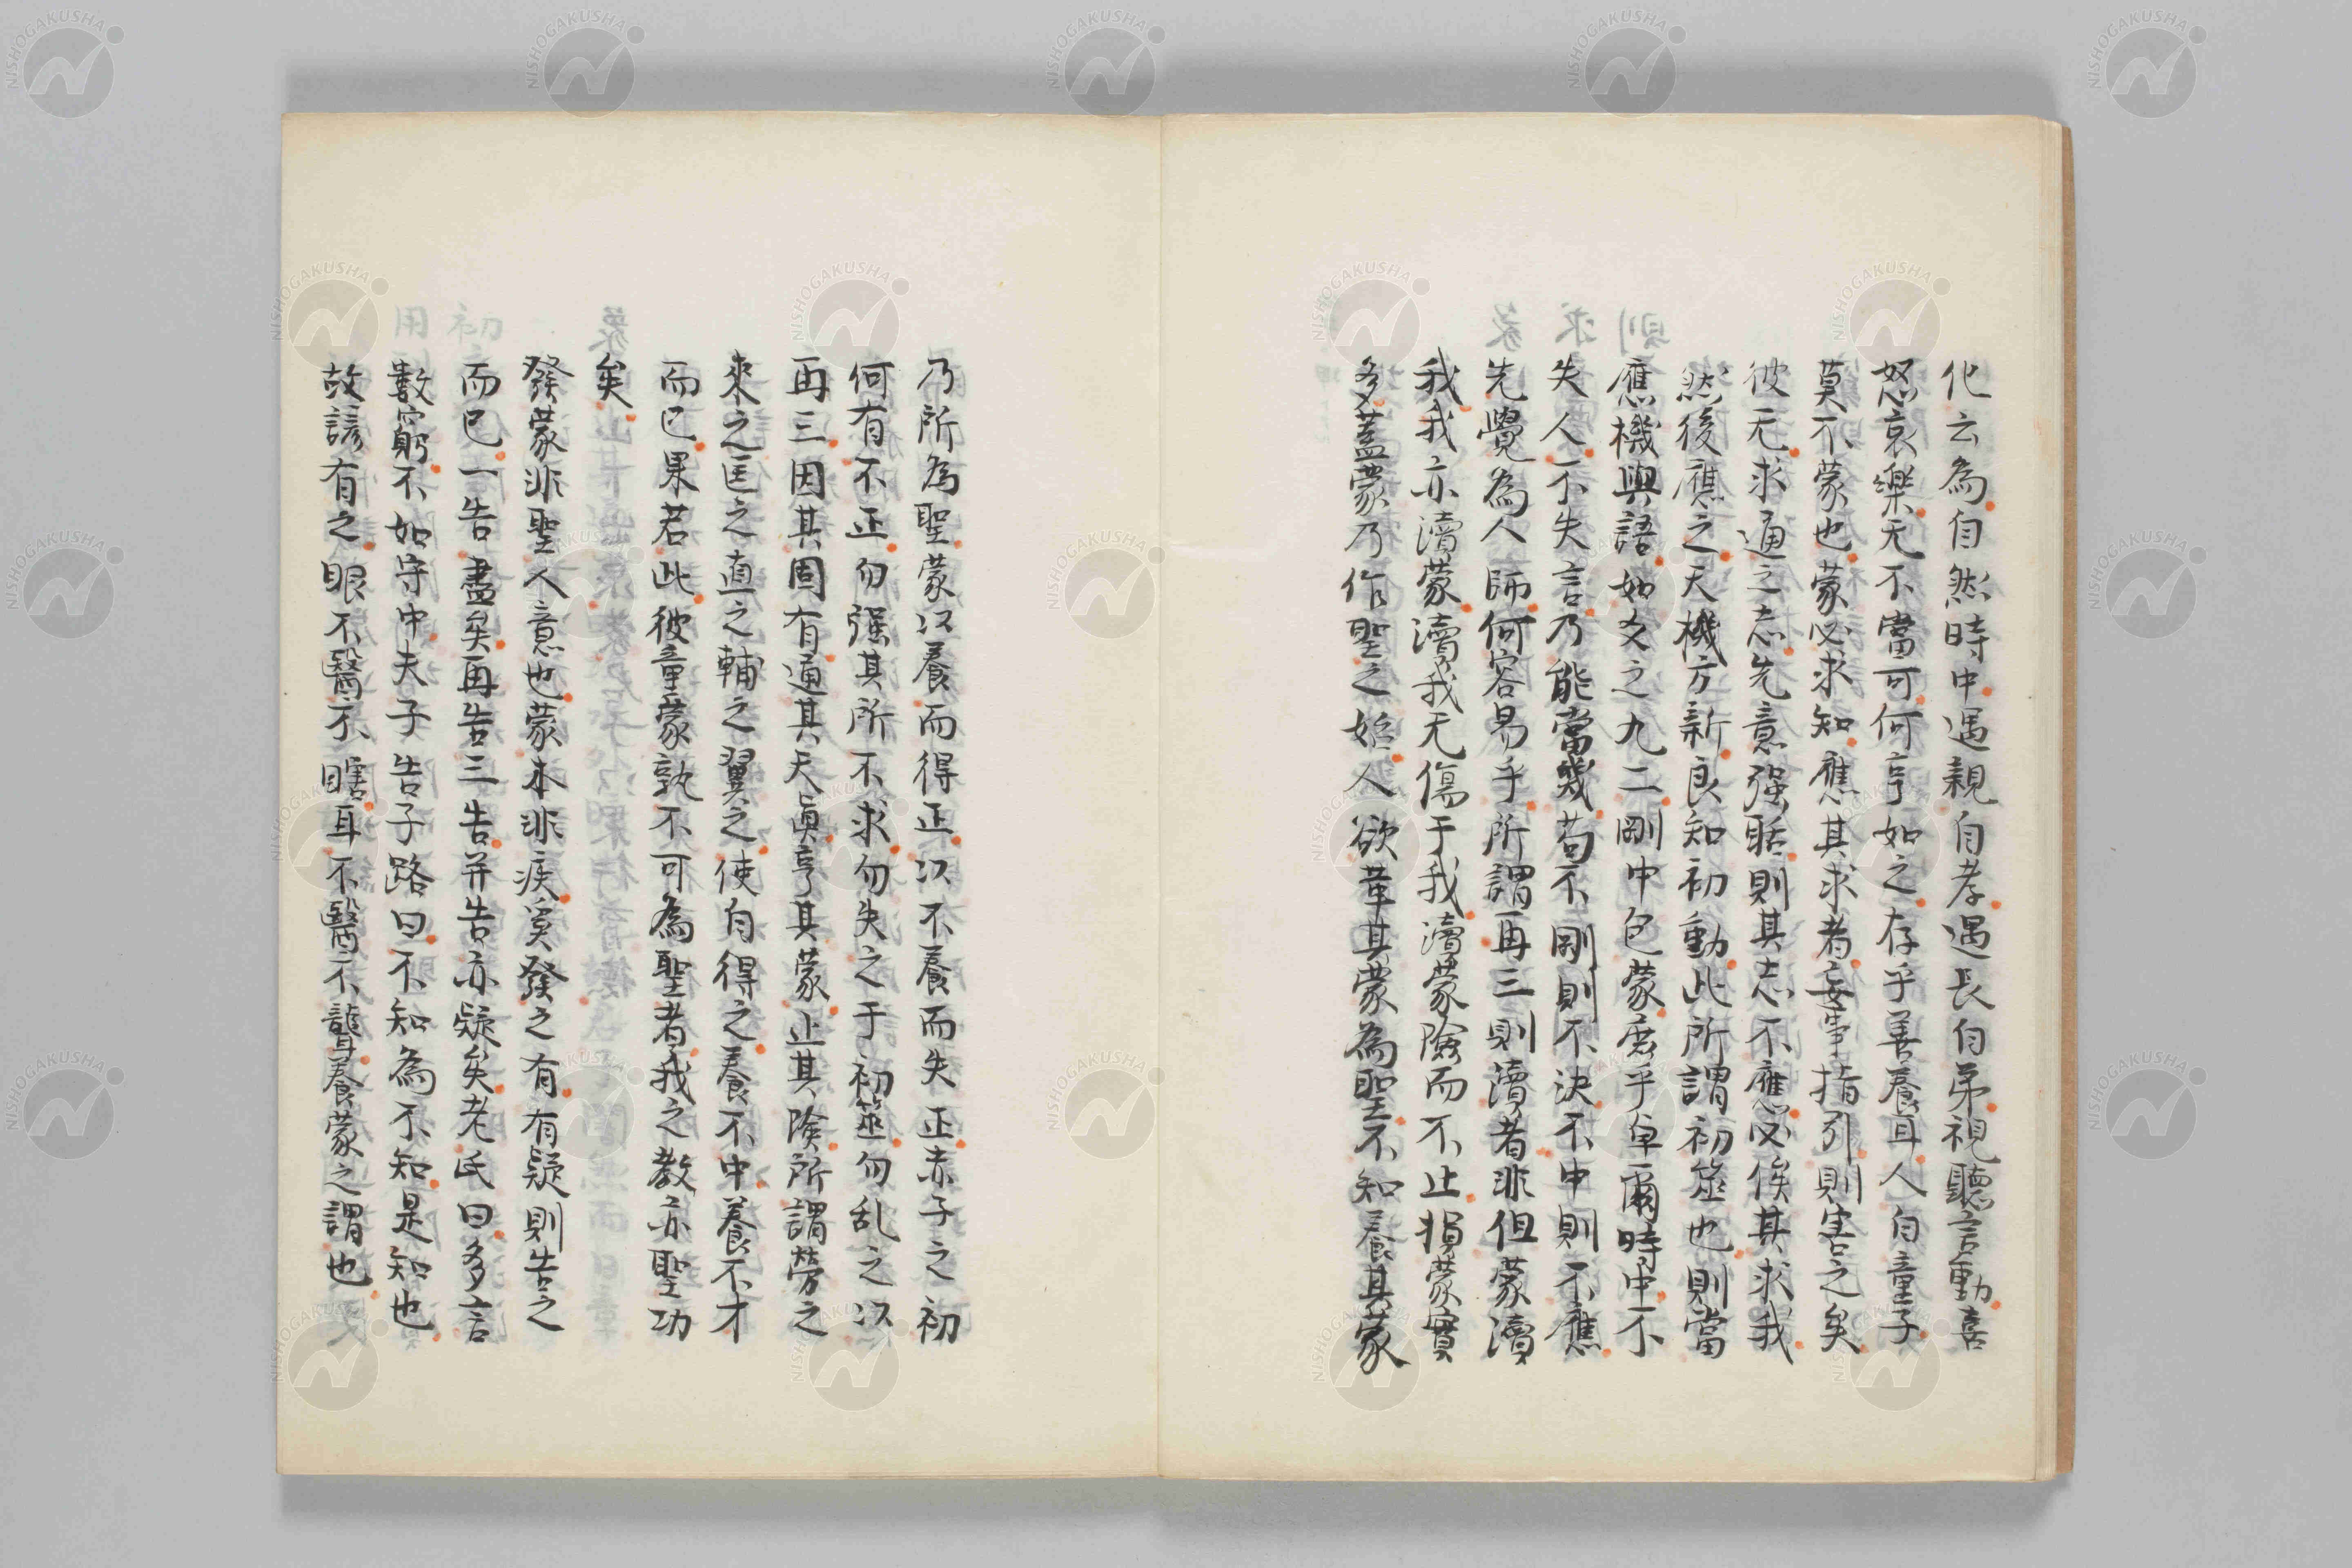 化云為自然時中遇親自孝遇長自弟視聽言動喜
怒哀樂无不當可何亨如之存乎善養耳人自童子
莫不蒙也蒙必求知應其求者妄事指引則害之矣
彼无求通之志先意强聒則其志不應必俟其求我
然後應之天機方新良知初動此所謂初筮也則當
應機與語如爻之九二剛中包蒙庶乎卓爾時中不
失人不失言乃能當幾苟不剛則不決不中則不應
先覺為人師何容易乎所謂再三則瀆者非但蒙瀆
我我亦瀆蒙瀆我无傷于我瀆蒙險而不止損蒙實
多蓋蒙乃作聖之始人欲革其蒙為聖不知養其蒙
乃所為聖蒙以養而得正以不養而失正赤子之初
何有不正勿强其所不求勿失之于初筮勿乱之以
再三因其固有通其天真亨其蒙止其險所謂勞之
來之匡之直之輔之翼之使自得之養不中養不才
而已果若此彼童蒙孰不可為聖者我之教亦聖功
矣
發蒙非聖人意也蒙本非疾奚發之有有疑則告之
而已一告盡矣再告三告并告亦疑矣老氏曰多言
數窮不如守中夫子告子路曰不知為不知是知也
故諺有之眼不醫不瞎耳不醫不聾養蒙之謂也
NISHOGAKUSHA